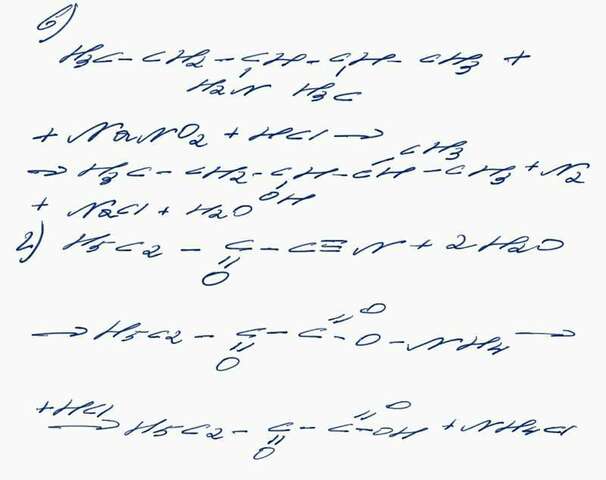 б)
H3C – CH2 – CH – CH – CH3 +
H2N H3C
+ NaNO2 + HCl →
CH3
→ H3C – CH2 – CH – CH – CH3 + N2
OH
+ NaCl + H2O
г) H5C2 – C – C≡N + 2H2O
O
→ H5C2 – C – C = O – O – NH4 →
O
+HCl
→ H5C2 – C – C = O – OH + NH4Cl
O